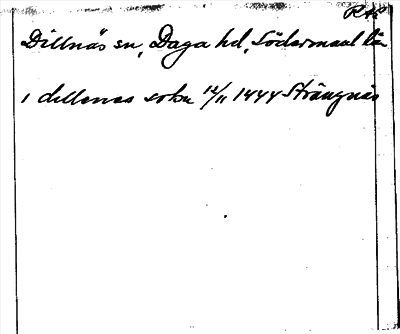 RAP
Dillnäs sn, Daga hd, Södermanl län
i dillenes sokn 12/11 1444 Strängnäs